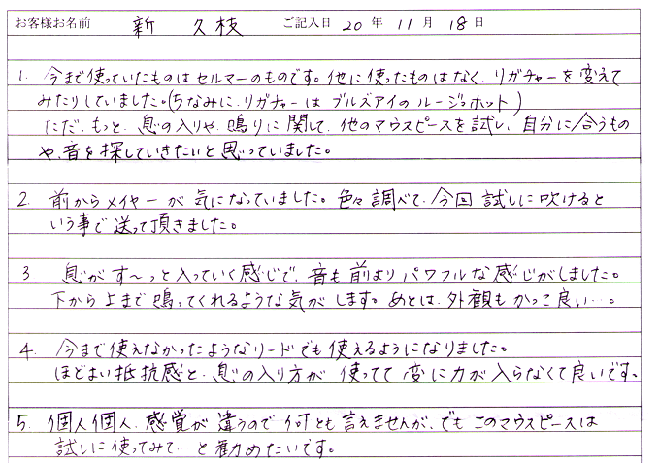 お客様お名前 新 久枝 ご記入日 20 年 11 月 18 日
1. 今まで使っていたものはセルマーのものです。他に使ったものはなく、リガチャーを変えて
みたりしていました。(ちなみに、リガチャーは ブルズアイのルージュホット)
ただ、もっと、息の入りや、鳴りに関して、他のマウスピースを試し、自分に合うもの
や、音を探していきたいと思っていました。
2. 前からメイヤーが気になっていました。色々調べて、今回試しに吹けると
いう事で送って頂きました。
3 息がす〜っと入っていく感じで、音も前よりパワフルな感じがしました。
下から上まで鳴ってくれるような気がします。あとは、外観もかっこ良い…。
4. 今まで使えなかったようなリードでも使えるようになりました。
ほどよい抵抗感と、息の入り方が 使ってて 変に力が入らなくて良いです。
5. 個人個人、感覚が違うので何とも言えませんが、でもこのマウスピースは
試しに使ってみて、と勧めたいです。